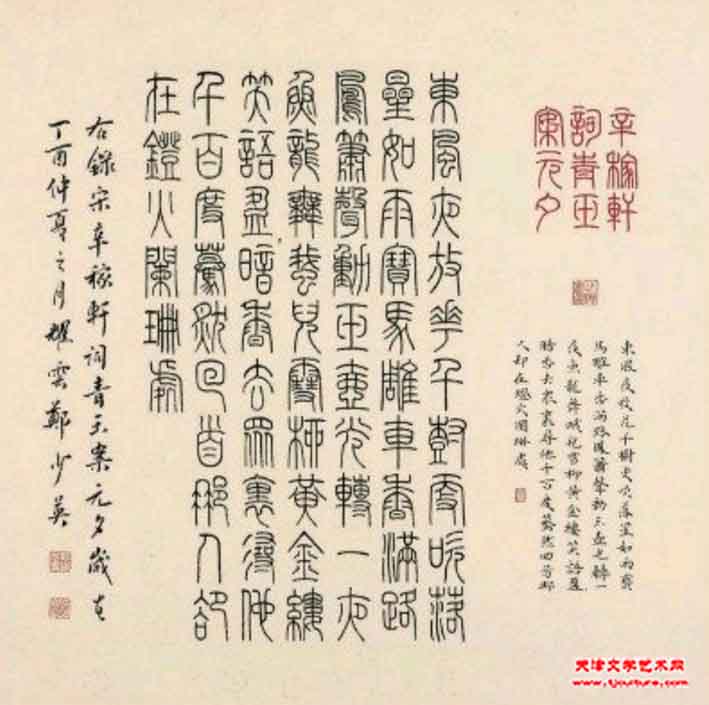 辛稼軒
詞青玉
案元夕
東風夜放花千樹更吹落星如雨寶
馬雕車香滿路鳳簫聲動玉壺光轉一
夜魚龍舞蛾兒雪柳黃金縷笑語盈
暗香去衆裏尋他千百度驀然回首那
人却在燈火闌珊處
東風夜放花千尌更吹落
星如雨寶馬雕車香滿路
鳳簫聲動玉壺光轉一夜
魚龍舞蛾兒雪柳黃金縷
笑語盈暗香去眾裏尋他
千百度驀然回首那人卻
在鐙火闌珊處
右錄宋辛稼軒詞青玉案元夕歲在
丁酉仲夏之月耀雲鄭少英
天津文学艺术网
www.tjculture.com